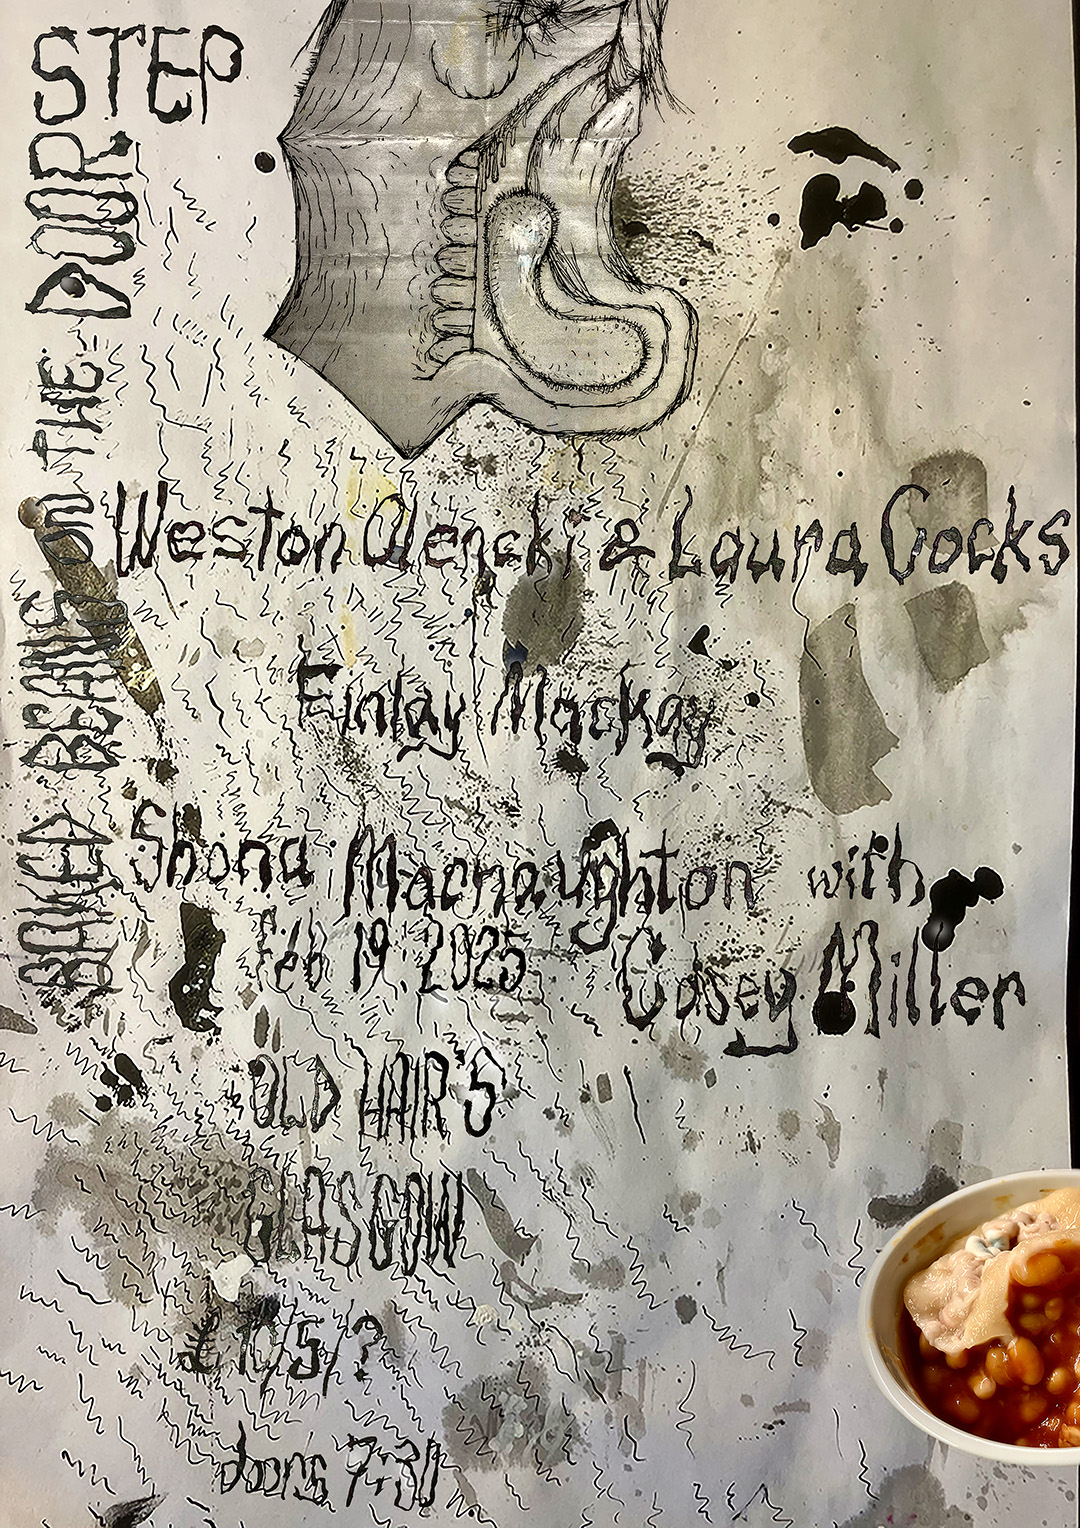 BAKED BEANS ON THE DOORSTEP
Weston Olencki & Laura Cocks
Finlay Mackay
Shona Macnaughton with
Casey Miller
Feb 19. 2025
OLD HAIR'S
GLASGOW
£10/5/?
doors 7:30